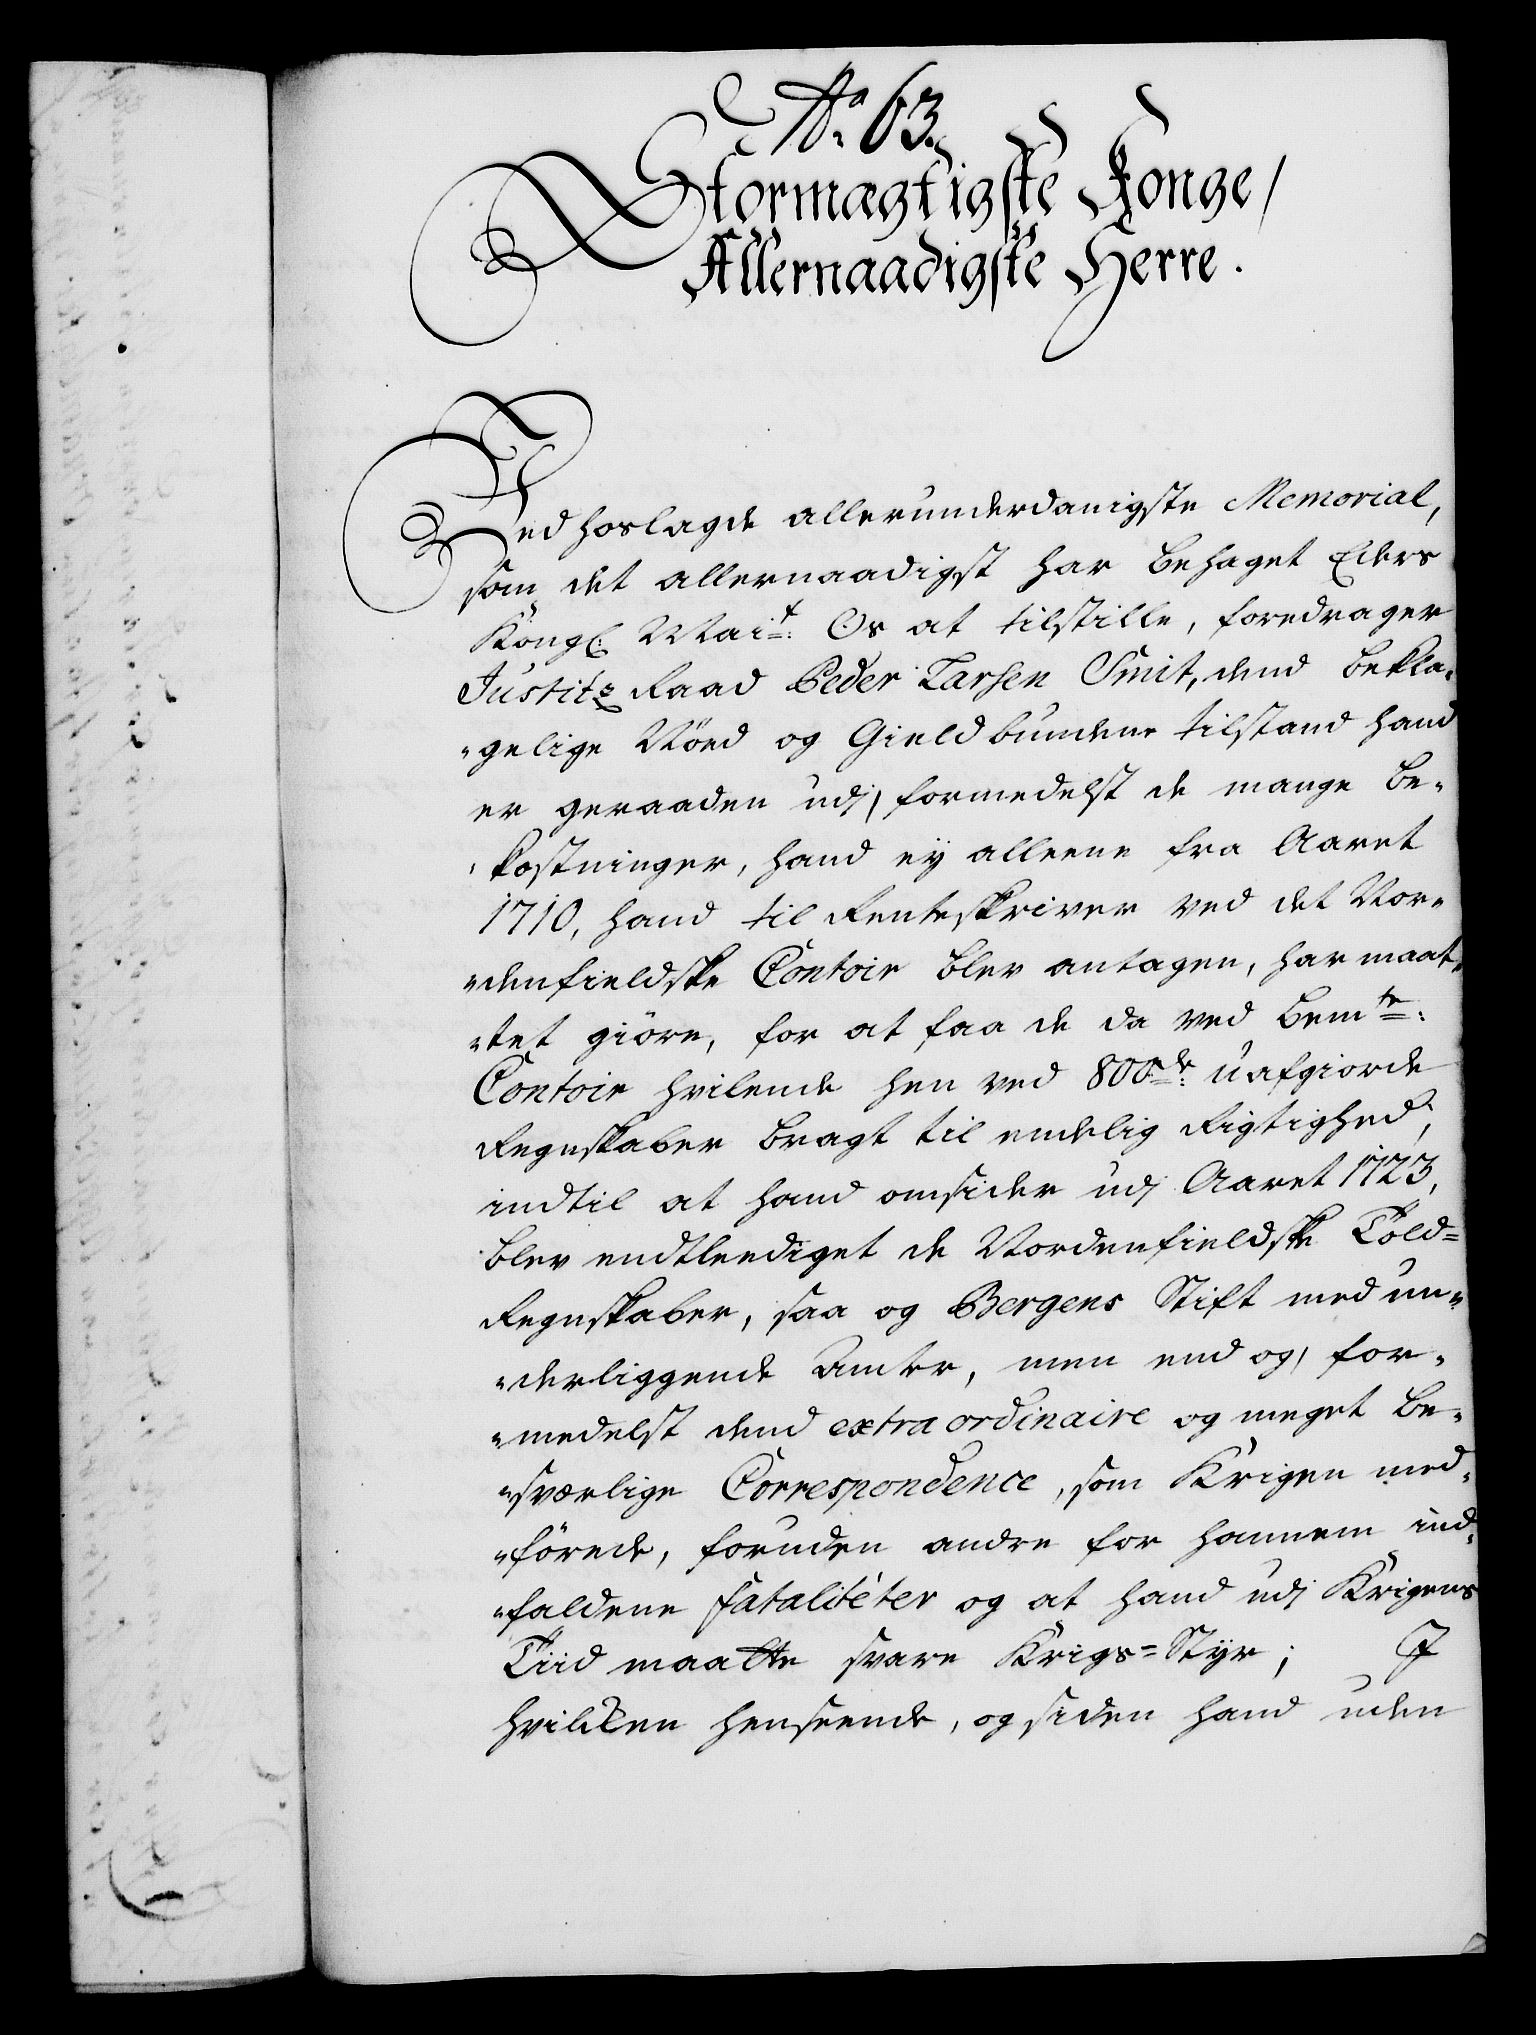 No. 63.
Stormægtigste Konge/
Allernaadigste Herre.
Ved hoslagde allerunderdanigste Memorial,
som det allernaadigst har behaget Eders
Kongl. Mait: Os at tilstille, foredrager
Justitz Raad Peder Larsen Smit, dend bekla-
-gelige Nöed og Gieldbundene tilstand hand
er geraaden udj, formedelst de mange be-
-kostninger, hand eÿ alleene fra Aaret
1710, hand til Renteskriver ved det Nor-
-denfieldske Contoir blev antagen, har maat-
-tet giöre, for at faa de da ved bemte:
Contoir hvilende hen ved 800de: uafgiorde
Regnskaber bragt til endelig Rigtighed,
indtil at hand omsider udj Aaret 1723,
blev endtleediget de Nordenfieldske Told-
Regnskaber, saa og Bergens Stift med un-
-derliggende Amter, men end og, for-
-medelst dend extraordinaire og meget be-
-sværlige Correspondence, som Krigen med-
-förede, foruden andre for hannem ind-
-faldene fataliteter og at hand udj Krigens
Tiid maatte svare Krigs-Styr; J
hvilcken henseende, og siden hand uden